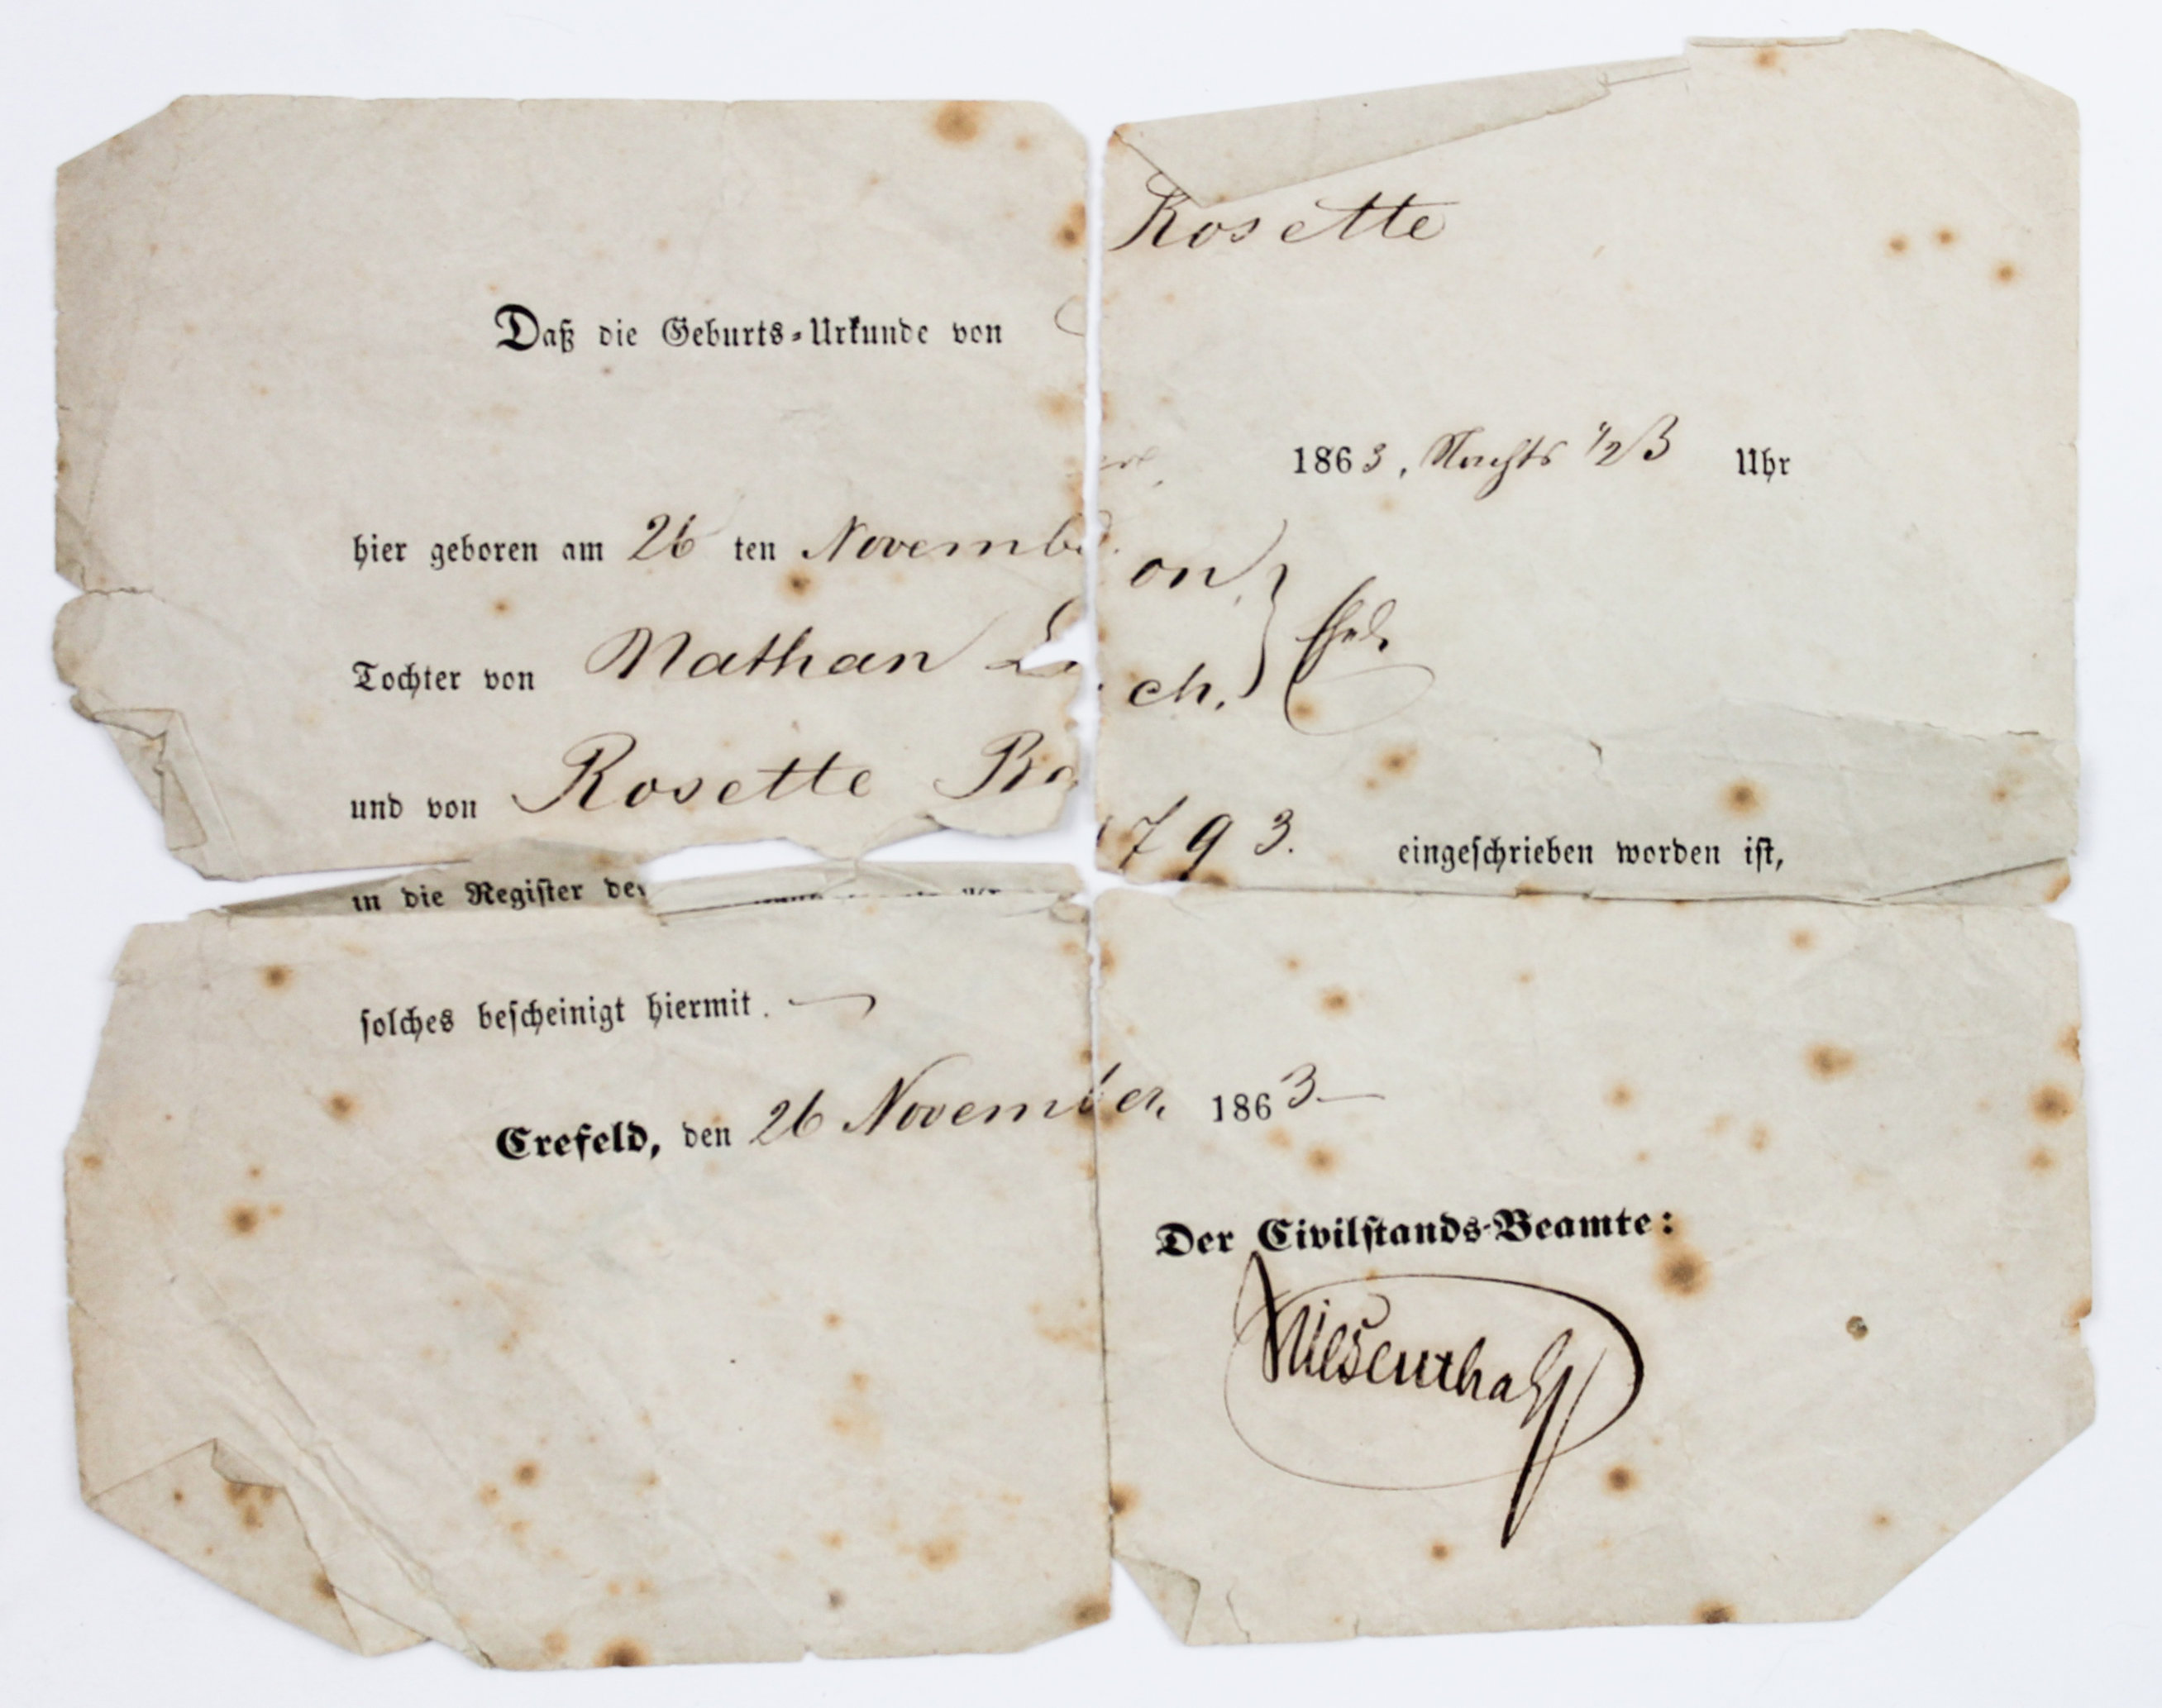 Rosette
Daß die Geburts-Urkunde von
1863, Nachts ½3 Uhr
hier geboren am 26 ten Novemb
on
Tochter von Nathan
ch.
und von Rosette
1793. eingeschrieben worden ist,
in die Register de
solches bescheinigt hiermit.
Crefeld, den 26 November 1863
Der Civilstands-Beamte: